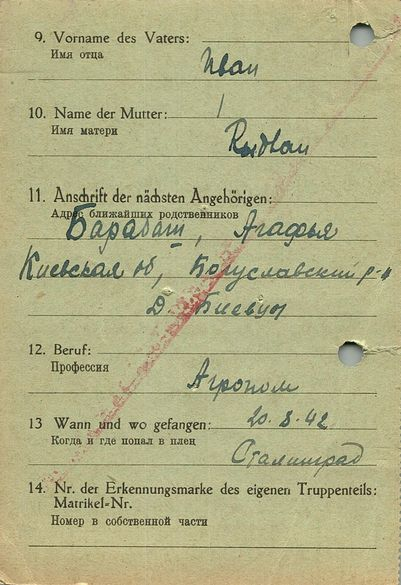 9. Vorname des Vaters:
Имя отца
Иван
10. Name der Mutter:
Имя матери
11. Anschrift der nächsten Angehörigen:
Адрес ближайших родственников
Барабаш, Агафья
Киевская об, Богуславский р-н
Д. Биевцы
12. Beruf:
Профессия
Агроном
13 Wann und wo gefangen: 20.8.42
Когда и где попал в плен
Сталинград
14. Nr. der Erkennungsmarke des eigenen Truppenteils:
Matrikel-Nr.
Номер в собственной части